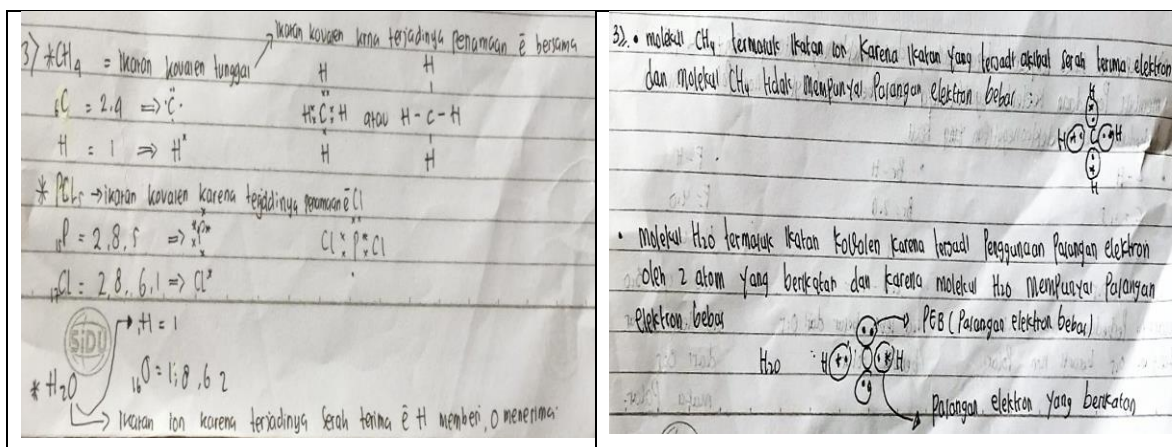 Ikatan kovalen krna terjadinya penamaan ē bersama
3) *CH4 = Ikatan kovalen tunggal
H H
6C = 2.4 ⇒ C
H C H atau H - C - H
H = 1 ⇒ H*
H H
* PCl5 → ikatan kovalen karena terjadinya penamaan ē
Cl
15P = 2,8,5 ⇒ P
Cl P Cl
17Cl = 2,8,6,1 ⇒ Cl*
SiDU
H = 1
* H2O
16O = 1;8,6 2
Ikatan ion karena terjadinya serah terima ē H memberi, O menerima
3). • molekul CH4 termasuk Ikatan ion karena Ikatan yang terjadi akibat serah terima elektron
dan molekul CH4 tidak mempunyai Pasangan elektron bebas
H
H C H
H
• molekul H2O termasuk Ikatan Kovalen karena terjadi Penggunaan Pasangan elektron
oleh 2 atom yang berikatan dan karena molekul H2O mempunyai Pasangan
elektron bebas
PEB (Pasangan elektron bebas)
H2O H O H
Pasangan elektron yang berikatan